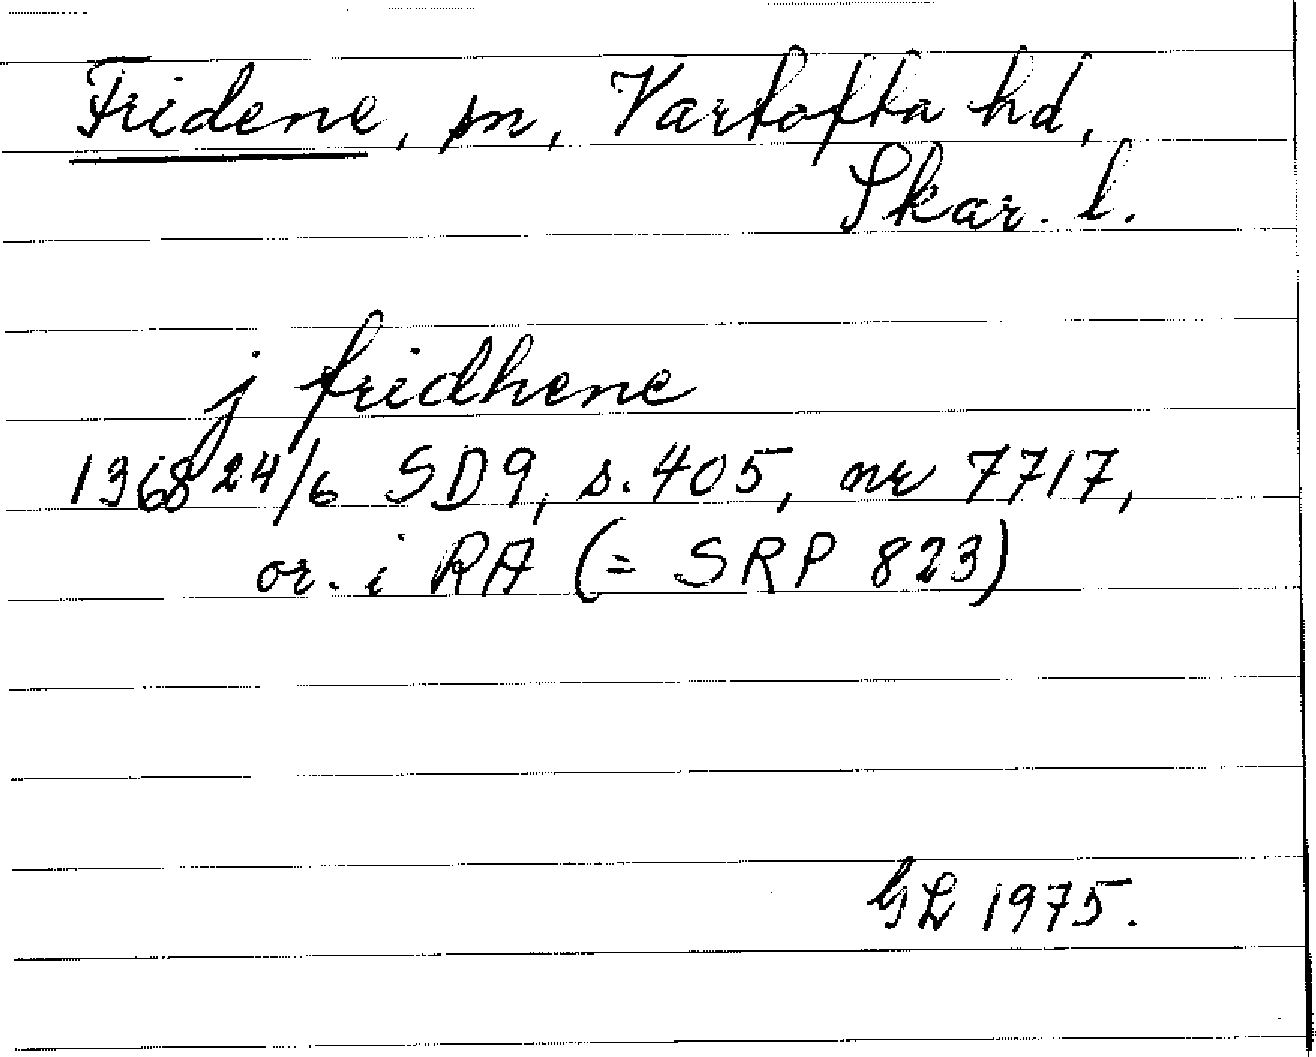 Fridene, sn, Vartofta hd,
Skar. l.
j fridhene
1368 24/6 SD9, s. 405, nr 7717,
or. i RA (= SRP 823)
GL 1975.